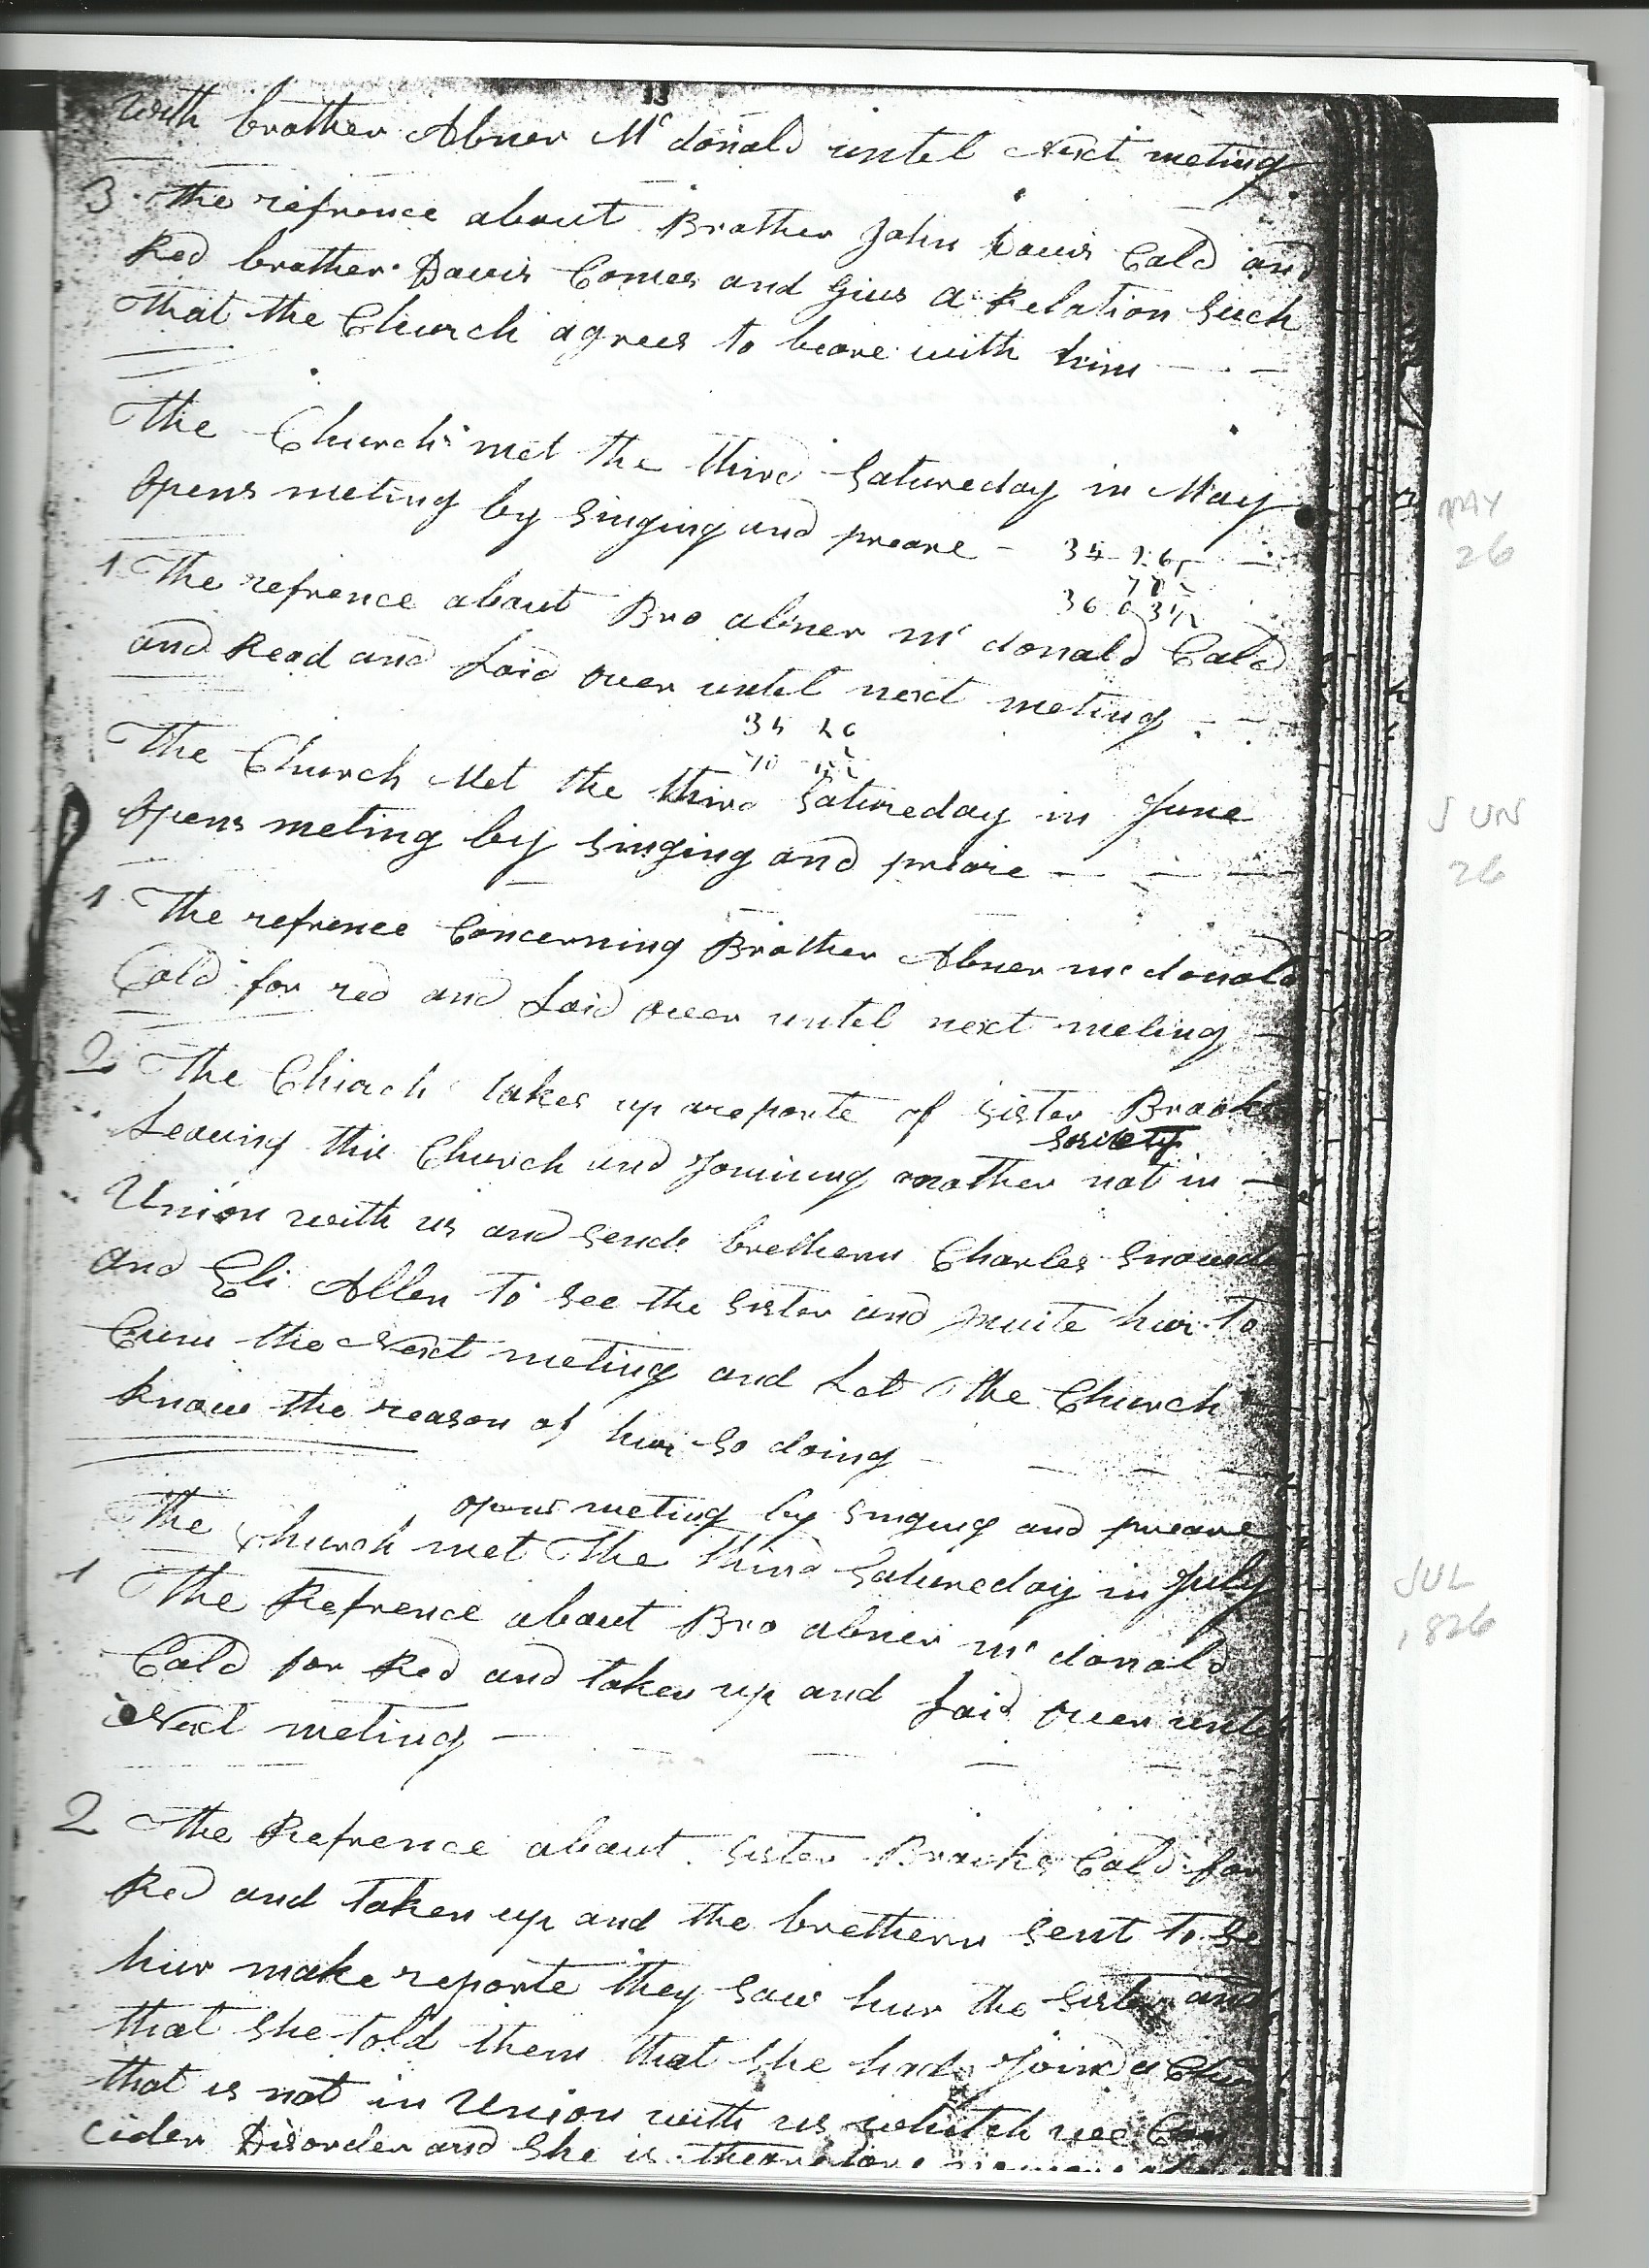 with brother Abner Mc donald untel Next meting
3 The refrence about Brother John Davis Cald and
Red brother Davis Comes and gives a Relation Such
that the Church agrees to beare with him
The Church met the third Satureday in May
opens meting by Singing and preare
MAY
26
1 The refrence about Bro abner mc donald Cald
and Read and Laid over untel next meting
35 26
The Church Met the third Satureday in June
opens meting by Singing and preare
JUN
26
1 The refrence Concerning Brother Abner mc donald
Cald for red and Laid over untel next meting
2 The Church takes up areporte of Sister Brooks
Society
Leaving this Church and Joining another not in
Union with us and sends bretheren Charles
and Eli Allen to See the Sister and invite hur to
Cum the Next meting and Let the Church
know the reason of hur So doing
opens meting by Singing and preare
The Church met The third Satureday in July
JUL
1826
1 The Refrence about Bro abner mc donald
Cald for Red and taken up and Laid over untel
Next meting
2 The Refrence about Sister Brooks Cald for
Red and taken up and the brethern Sent to Se
hur make reporte they Saw hur the Sister and
that She told them that She had Joind a
that is not in Union with us whitch we Con
cider Disorder and She is therefore